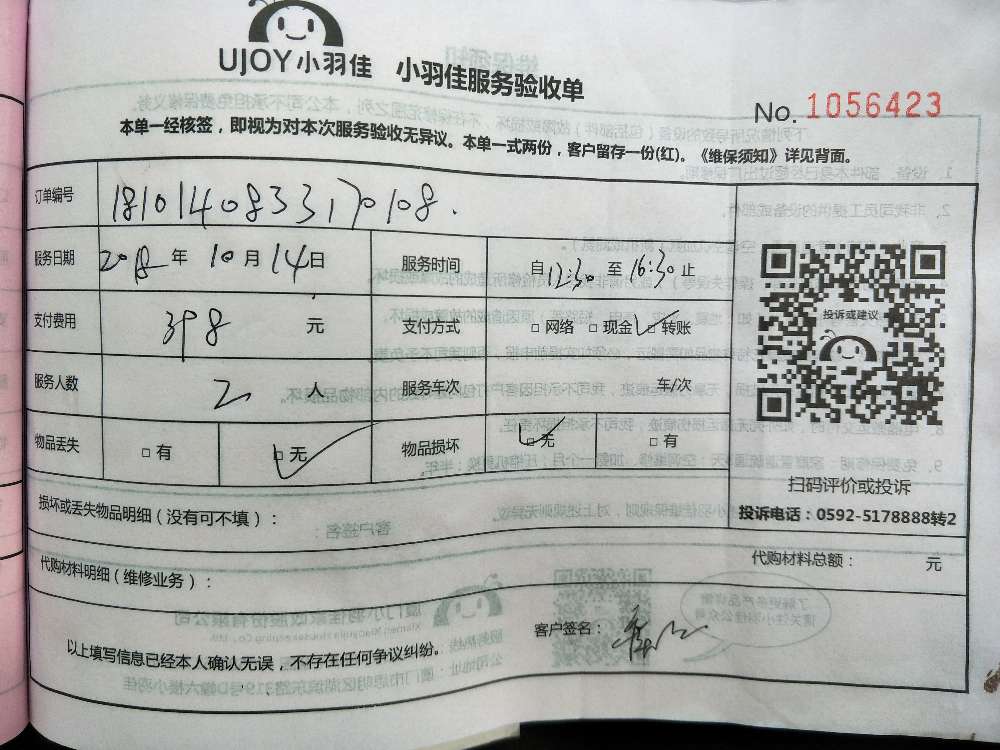 UJOY小羽佳 小羽佳服务验收单
No. 1056423
本单一经核签，即视为对本次服务验收无异议。本单一式两份，客户留存一份(红)。《维保须知》详见背面。
订单编号 1810140833170108.
服务日期 2018 年 10 月 14 日 服务时间 自 12:30 至 16:30 止
支付费用 398 元 支付方式 □ 网络 □ 现金 □ 转账
服务人数 2 人 服务车次 车/次
物品丢失 □ 有 □ 无 物品损坏 □ 无 □ 有
投诉或建议
扫码评价或投诉
投诉电话：0592-5178888转2
损坏或丢失物品明细 ( 没有可不填 )：
代购材料明细 ( 维修业务 )： 代购材料总额： 元
以上填写信息已经本人确认无误，不存在任何争议纠纷。 客户签名：